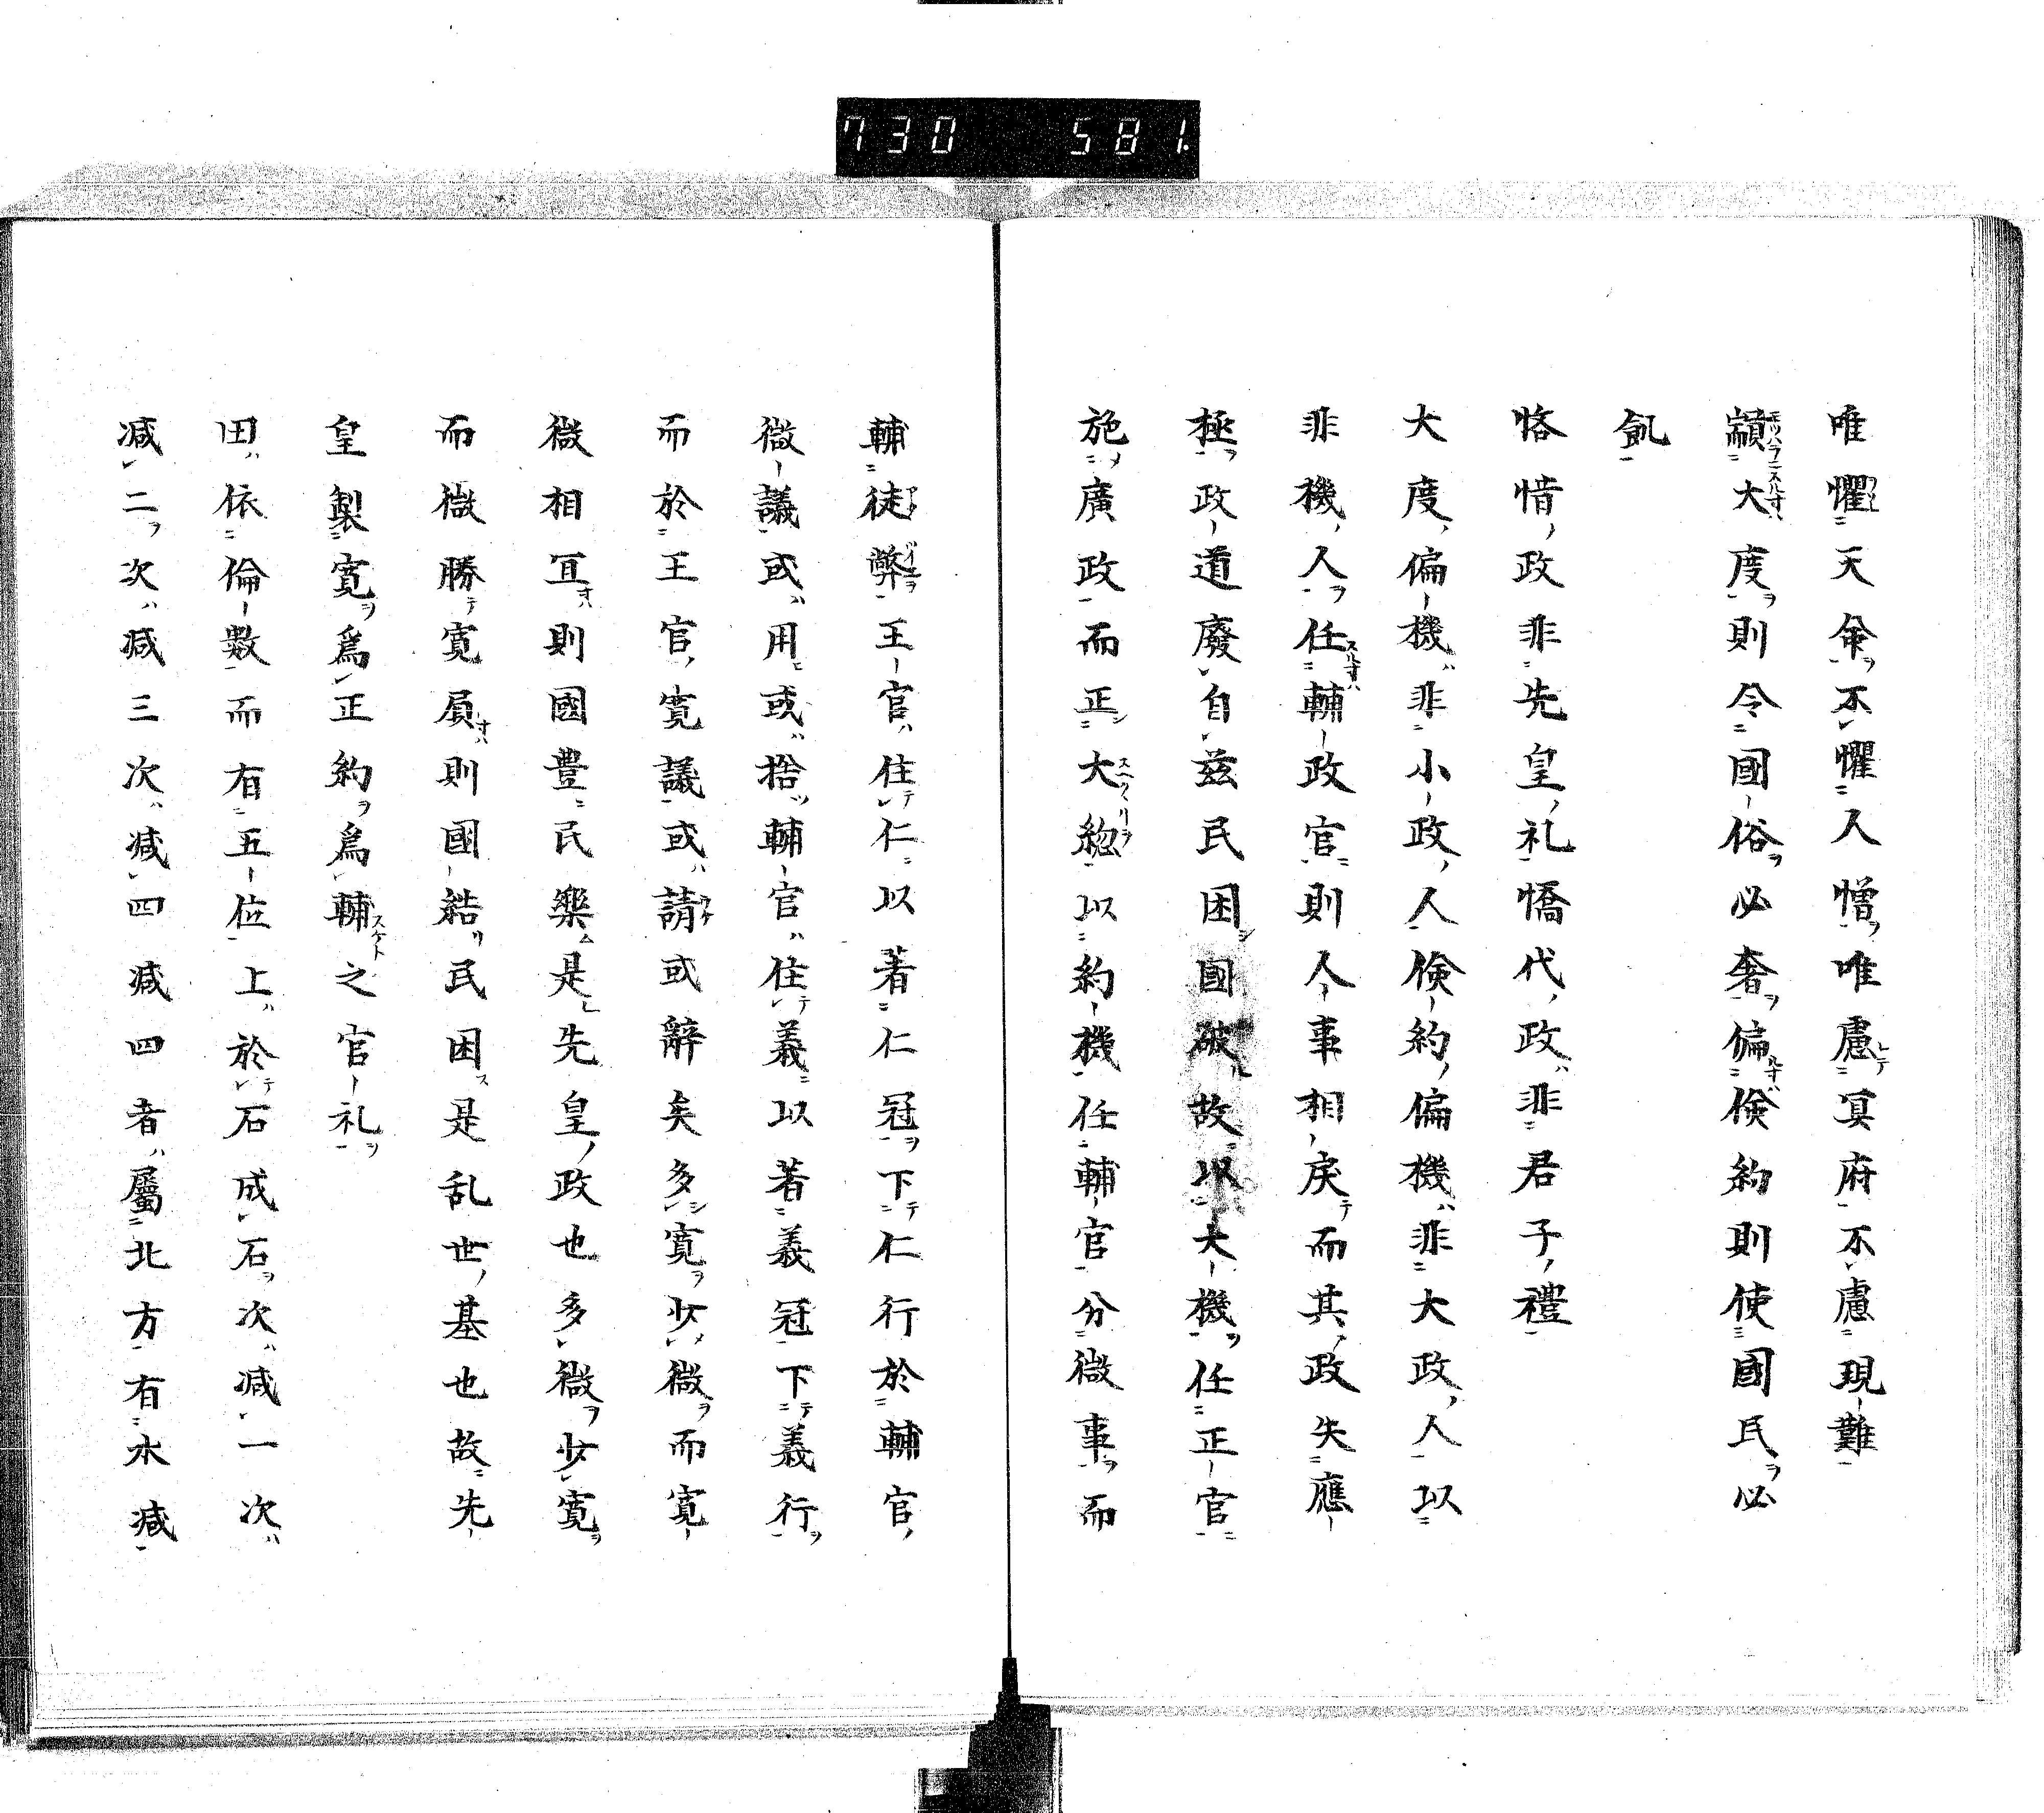 730 581.
唯懼天命不懼人憎唯慮冥府不慮現難
顓大度則令國俗必奢偏儉約則使國民必
飢
悋惜政非先皇礼憍代政非君子禮
大度偏機非小政人儉約偏機非大政人以
非機人任輔政官則人事相戾而其政失應
極政道廢自茲民困國破故以大機任正官
施廣政而正大総以約機任輔官分微事而
輔徒弊王官住仁以著仁冠下仁行於輔官
微議或用或捨輔官住義以著義冠下義行
而於王官寛議或請或辭矣多寛少微而寛
微相亘則國豊民樂是先皇政也多微少寛
而微勝寛屓則國結民困是乱世基也故先
皇製寛爲正約爲輔之官礼
田依倫數而有五位上於石成石次減一次
減二次減三次減四減四者屬北方有水減